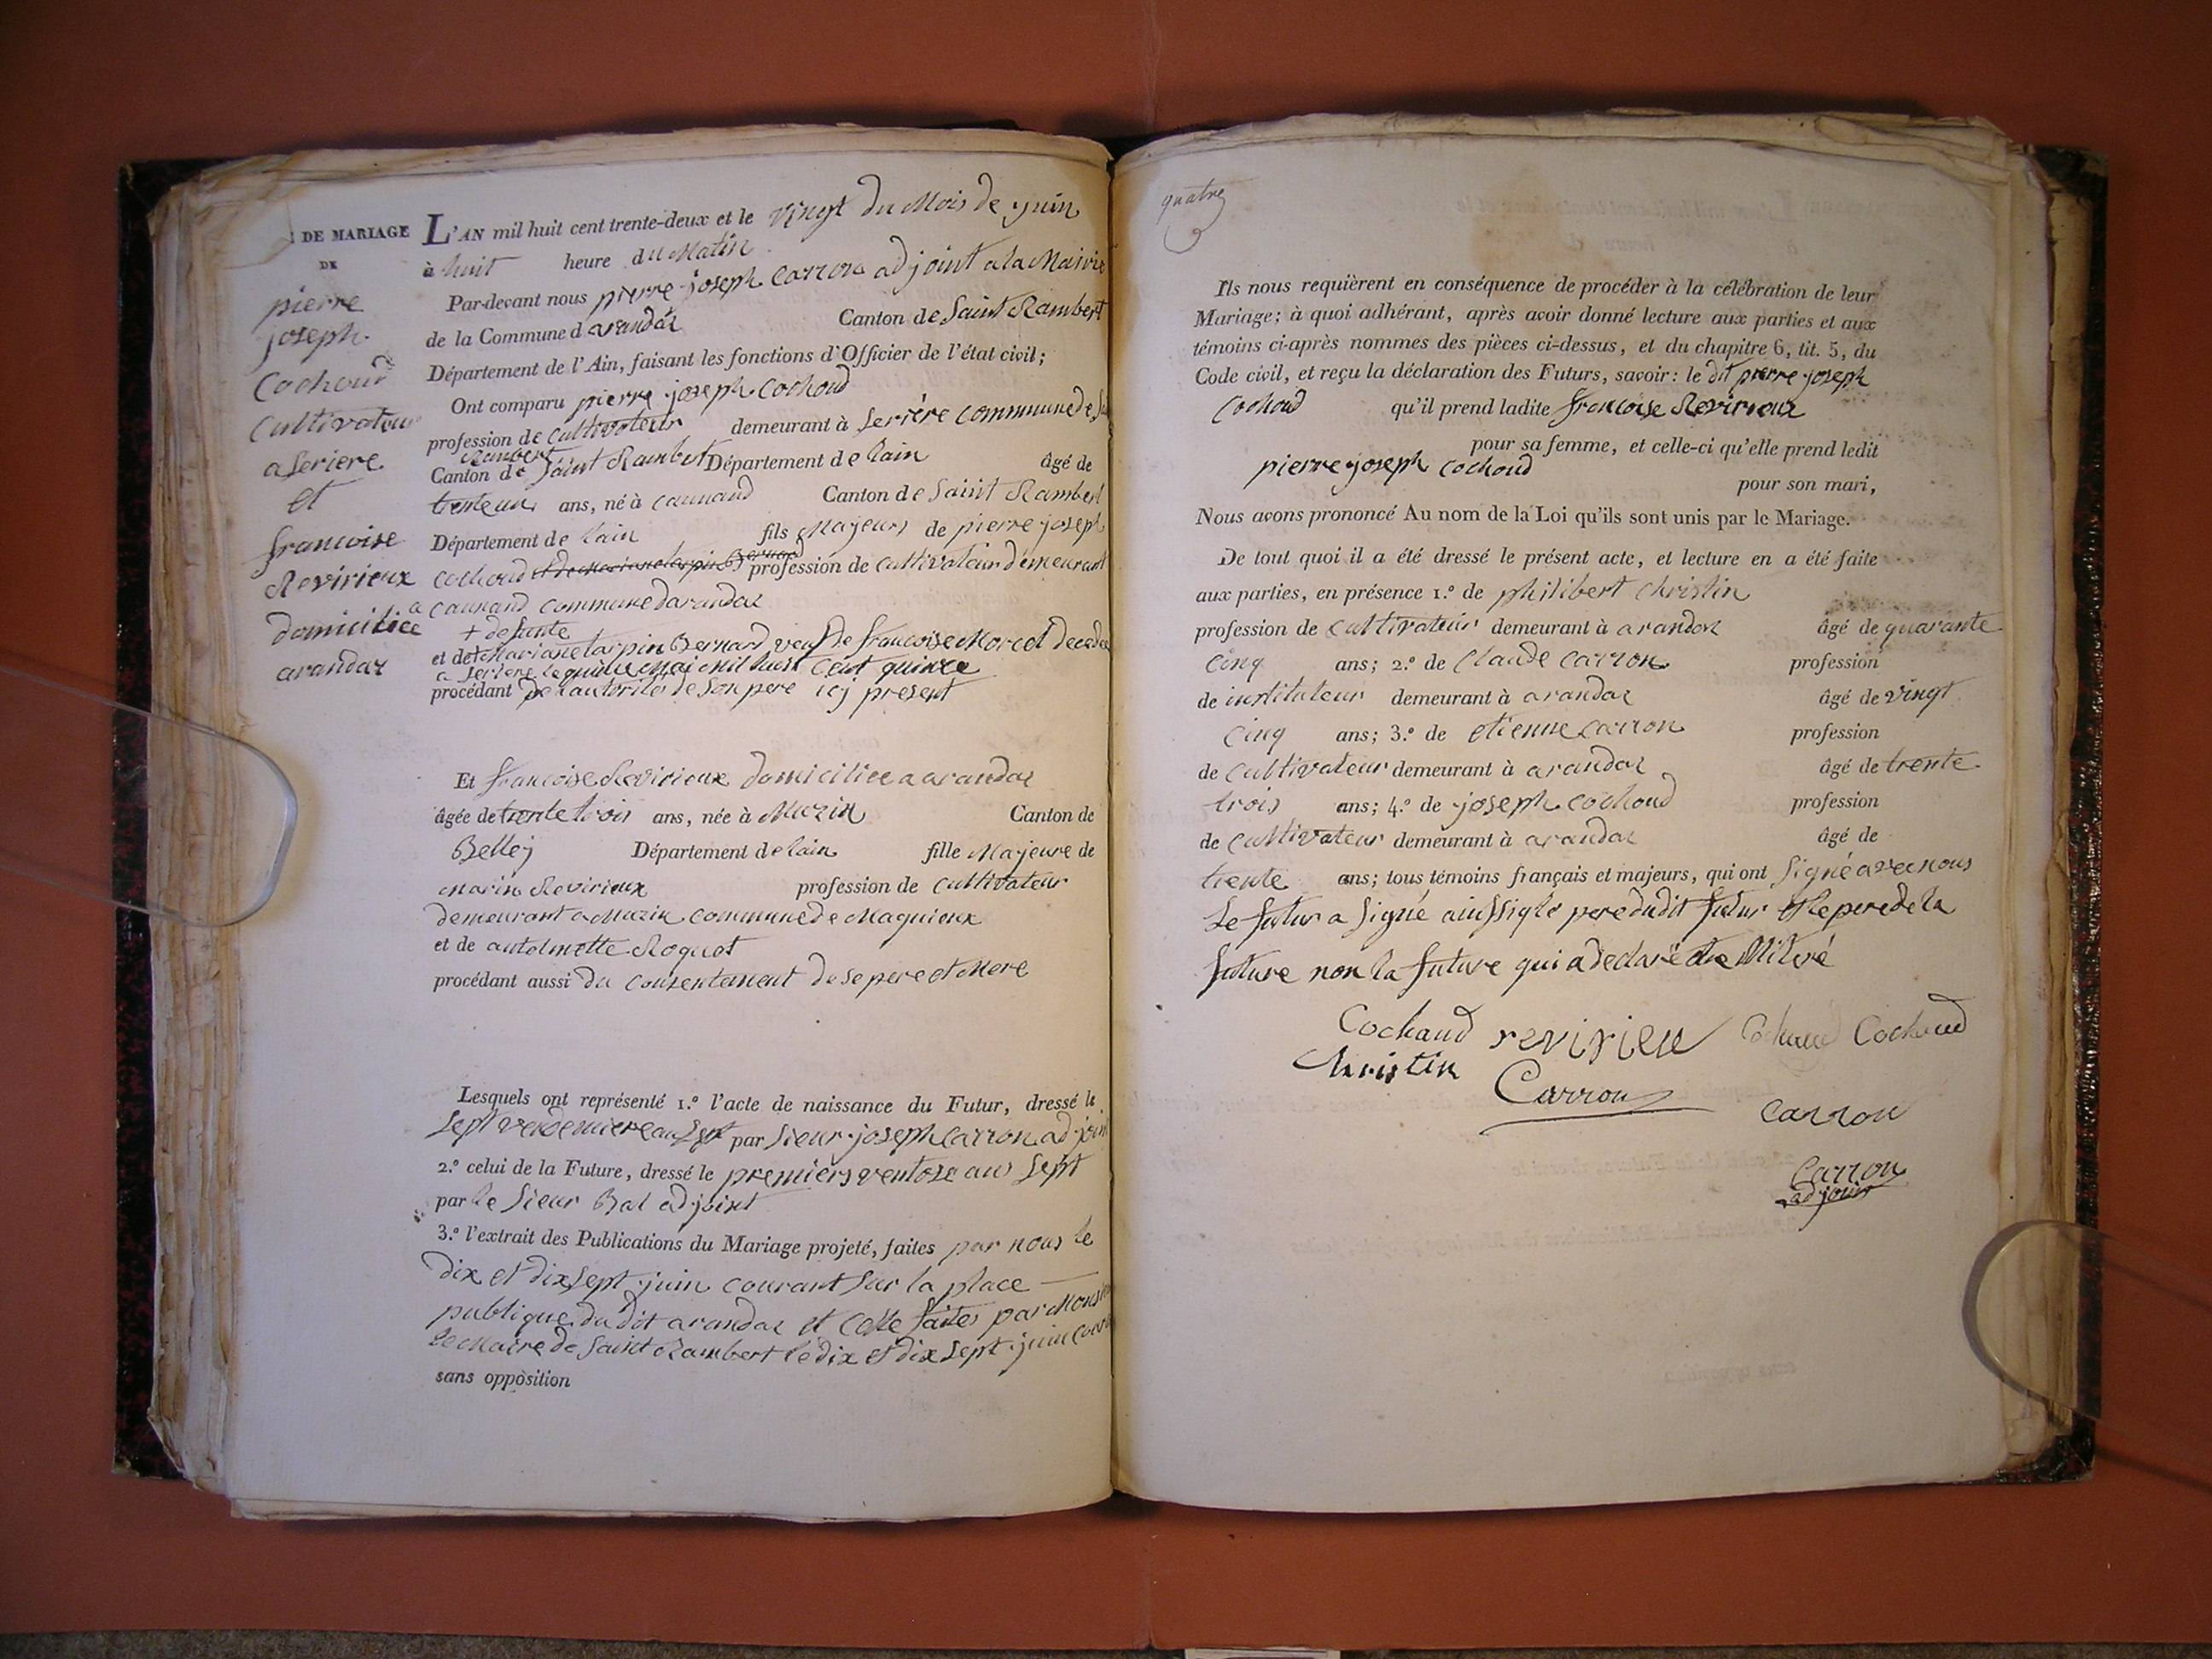 DE MARIAGE
DE
pierre
joseph
Cochoud
Cultivateur
a Seriere
et
francoise
Revirieux
domiciliee a
arandas
L'AN mil huit cent trente-deux et le vingt du Mois de juin
à huit heure du Matin
Par-devant nous pierre joseph Carron adjoint a la Mairie
de la Commune d arandas Canton de Saint Rambert
Département de l'Ain, faisant les fonctions d'Officier de l'état civil;
Ont comparu pierre joseph Cochoud
profession de Cultivateur demeurant à Serière commune de St
Rambert
Canton de Saint Rambert Département de lain âgé de
trente un ans, né à caunand Canton de Saint Rambert
Département de lain fils Majeurs de pierre joseph
Cochoud et de Mariane tarpin Bernard profession de Cultivateur demeurant
a caunand commune darandas
+ defunte
et de + Mariane tarpin Bernard veuf de francoise Morcel decedee
a Seriere le quinze Mai Mil huit Cent quinze
procédant de lautorité de son pere icy present
Et francoise Revirieux domiciliee a arandas
âgée de trente trois ans, née à Muzin Canton de
Belley Département de lain fille Majeure de
marin Revirieux profession de Cultivateur
demeurant a Muzin commune de Maguieux
et de antelmette Roguet
procédant aussi du consentement de se pere et Mere
Lesquels ont représenté 1.º l'acte de naissance du Futur, dressé le
Sept vendemiere an Sept par Sieur joseph Carron adjoint
2.º celui de la Future, dressé le premiers ventose ans Sept
par le Sieur Bal adjoint
3.º l'extrait des Publications du Mariage projeté, faites par nous le
dix et dix sept juin courant sur la place
publique du dit arandas et celle faites par Monsieur
le Maire de Saint Rambert le dix et dix sept juin Coura
sans opposition
quatre
Ils nous requièrent en conséquence de procéder à la célébration de leur
Mariage; à quoi adhérant, après avoir donné lecture aux parties et aux
témoins ci-après nommes des pièces ci-dessus, et du chapitre 6, tit. 5, du
Code civil, et reçu la déclaration des Futurs, savoir: le dit pierre joseph
Cochoud qu'il prend ladite francoise Revirieux
pour sa femme, et celle-ci qu'elle prend ledit
pierre joseph cochoud
pour son mari,
Nous avons prononcé Au nom de la Loi qu'ils sont unis par le Mariage.
De tout quoi il a été dressé le présent acte, et lecture en a été faite
aux parties, en présence 1.º de philibert Christin
profession de Cultivateur demeurant à arandas âgé de quarante
Cinq ans; 2.º de Claude Carron profession
de instituteur demeurant à arandas âgé de vingt
Cinq ans; 3.º de etienne Carron profession
de Cultivateur demeurant à arandas âgé de trente
trois ans; 4.º de joseph Cochoud profession
de Cultivateur demeurant à arandas âgé de
trente ans; tous témoins français et majeurs, qui ont Signé avec nous
Le futur a Signé ainssi q le pere du dit futur et le pere de la
future non la future qui a declaré
Cochaud revirieu Cochoud
Christin
Carron
Carron
Carron
adjoint